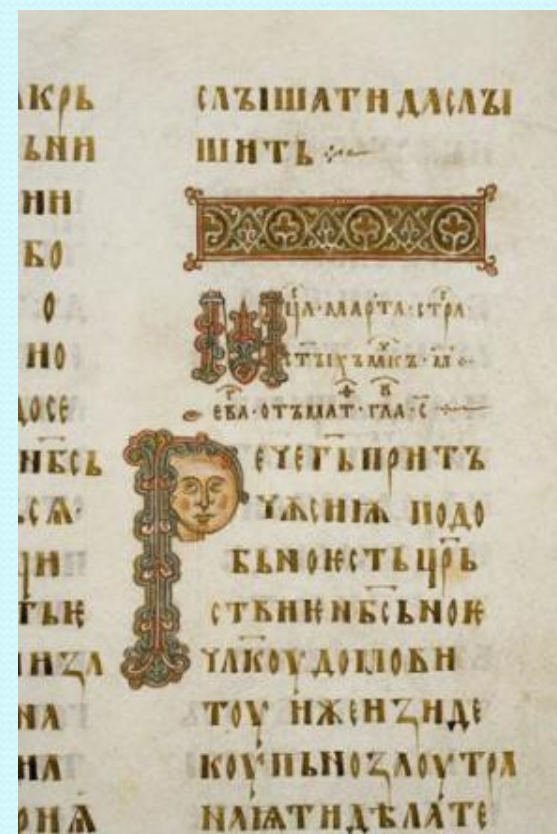 крь
ьни
ии
бо
о
но
досе
нб҃сь
сѧ·
ци
тьѥ
иза
на
на
СЛЪІШАТИ ДАСЛЪІ
ШИТЬ
М҃ЦА·МАРТА·СТРА
СТЪІХЪМ҃КЪ·М҃·
ЕВА·ОТЪМАТ·ГЛА·С҃
РЕЧЕГЬ҃ПРИТЪ
ЧѪСИѬ ПОДО
БЬНОѤСТЬЦР҃Ь
СТВИѤНБ҃СЬНОѤ
ЧЛ҃КОУДОМОВИ
ТОУ ИЖЕИЗИДЕ
КОУПЬНОЗАОУТРА
НАѨТИДѢЛАТЕ